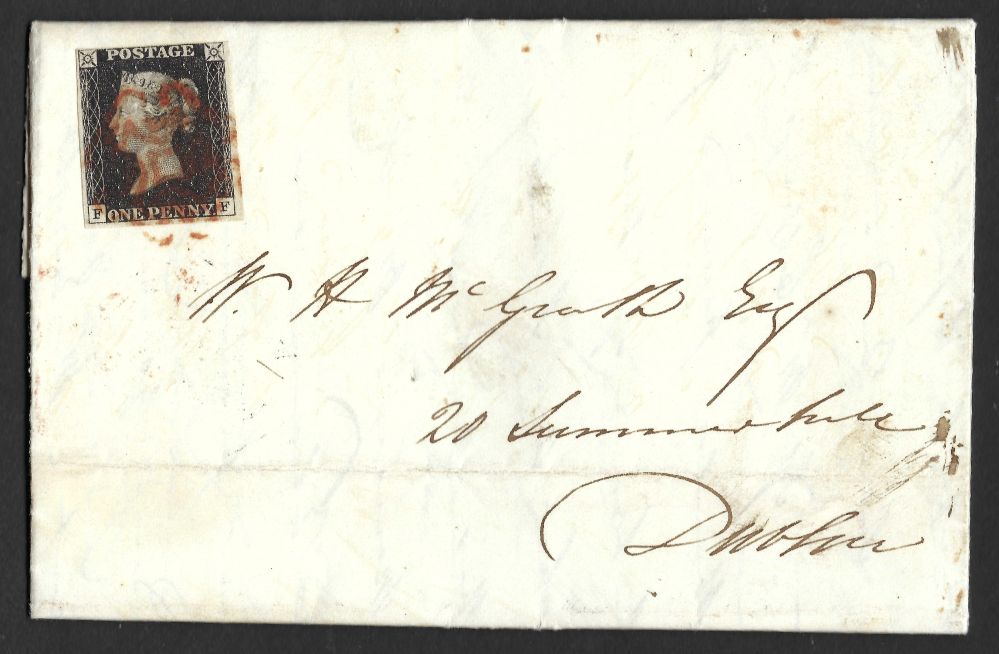 POSTAGE
F ONE PENNY. F
W. H McGrath Esq
20 Summerhill
Dublin